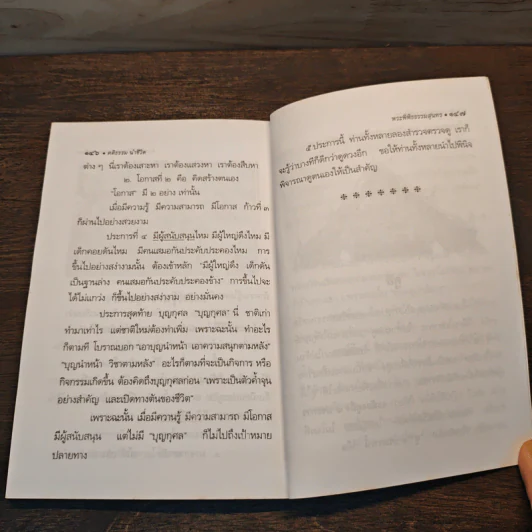 ๑๔๖ • คติธรรม นำชีวิต
ต่าง ๆ นี่เราต้องเสาะหา เราต้องแสวงหา เราต้องสืบหา
๒. โอกาสที่ ๒ คือ คิดสร้างตนเอง
"โอกาส" มี ๒ อย่าง เท่านั้น
เมื่อมีความรู้ มีความสามารถ มีโอกาส ก้าวที่ ๓
ก็ผ่านไปอย่างสวยงาม
ประการที่ ๔ มีผู้สนับสนุนไหม มีผู้ใหญ่ดึงไหม มี
เด็กคอยดันไหม มีคนเสมอกันประคับประคองไหม การ
ขึ้นไปอย่างสง่างามนั้น ต้องเข้าหลัก "มีผู้ใหญ่ดึง เด็กดัน
เป็นฐานล่าง คนเสมอกันประคับประคองข้าง" การขึ้นไปจะ
ได้ไม่แกว่ง ก็ขึ้นไปอย่างสง่างาม อย่างมั่นคง
ประการสุดท้าย บุญกุศล "บุญกุศล" นี่ ชาติเก่า
ทำมาเท่าไร แต่ชาติใหม่ต้องทำเพิ่ม เพราะฉะนั้น ทำอะไร
ก็ตามที โบราณบอก "เอาบุญนำหน้า เอาความสนุกตามหลัง"
"บุญนำหน้า วิชาตามหลัง" อะไรก็ตามที่จะเป็นกิจการ หรือ
กิจกรรมเกิดขึ้น ต้องคิดถึงบุญกุศลก่อน "เพราะเป็นตัวค้ำจุน
อย่างสำคัญ และเปิดทางตันของชีวิต"
เพราะฉะนั้น เมื่อมีความรู้ มีความสามารถ มีโอกาส
มีผู้สนับสนุน แต่ไม่มี "บุญกุศล" ก็ไม่ไปถึงเป้าหมาย
ปลายทาง
พระพิพิธธรรมสุนทร • ๑๔๗
๕ ประการนี้ ท่านทั้งหลายลองสำรวจตรวจดู เราก็
จะรู้ว่าบางทีก็ดีกว่าดูดวงอีก ขอให้ท่านทั้งหลายนำไปพินิจ
พิจารณาดูตนเองให้เป็นสำคัญ